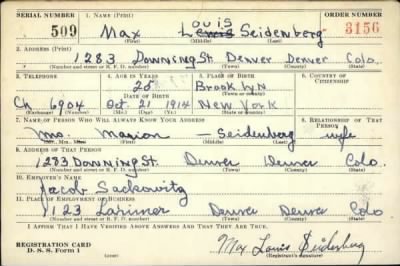 SERIAL NUMBER 1. NAME (Print) ORDER NUMBER
ouis
509 Max Lewis Seidenberg 3156
(First) (Middle) (Last)
2. ADDRESS (Print)
1283 Downing St. Denver Denver Colo.
(Number and street or R. F. D. number) (Town) (County) (State)
3. TELEPHONE 4. AGE IN YEARS 5. PLACE OF BIRTH 6. COUNTRY OF CITIZENSHIP
25 Brooklyn
DATE OF BIRTH (Town or county)
Ch 6904 Oct. 21 1914 New York
(Exchange) (Number) (Mo.) (Day) (Yr.) (State or country)
7. NAME OF PERSON WHO WILL ALWAYS KNOW YOUR ADDRESS 8. RELATIONSHIP OF THAT PERSON
Mrs. Marion — Seidenberg wife
(Mr., Mrs., Miss) (First) (Middle) (Last)
9. ADDRESS OF THAT PERSON
1283 Downing St. Denver Denver Colo.
(Number and street or R. F. D. number) (Town) (County) (State)
10. EMPLOYER'S NAME
Jacob Sackowitz
11. PLACE OF EMPLOYMENT OR BUSINESS
1123 Larimer Denver Denver Colo
(Number and street or R. F. D. number) (Town) (County) (State)
I AFFIRM THAT I HAVE VERIFIED ABOVE ANSWERS AND THAT THEY ARE TRUE.
REGISTRATION CARD
D. S. S. Form 1 (over) Max Louis Seidenberg
(Registrant's signature)